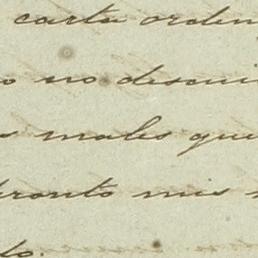 carta orden
o no descui
s males que
pronto mis
do.